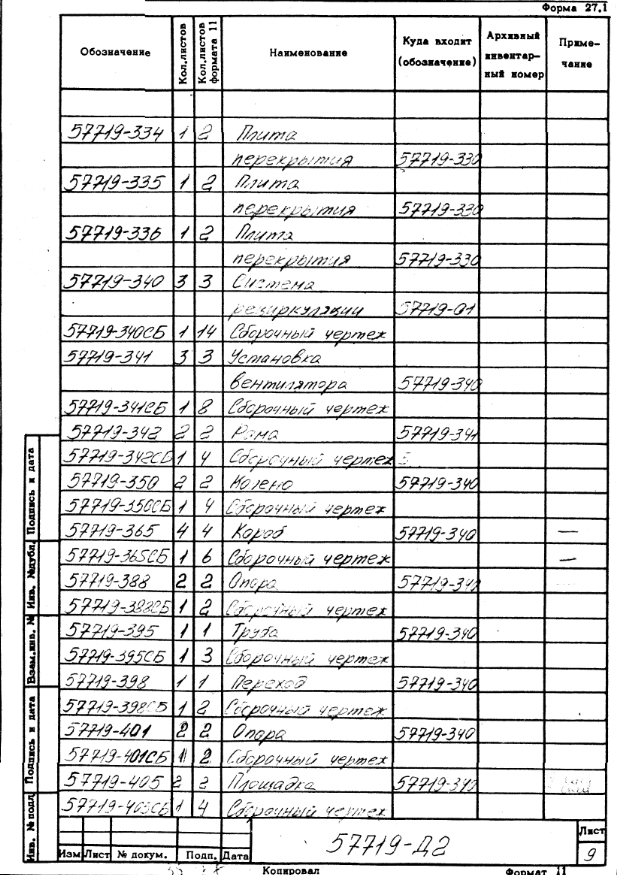 Форма 27.1
Обозначение Кол.листов Кол.листов формата 11 Наименование Куда входит (обозначение) Архивный инвентар-ный номер Приме-чание
57719-334 1 2 Плита
перекрытия 57719-330
57719-335 1 2 Плита
перекрытия 57719-330
57719-336 1 2 Плита
перекрытия 57719-330
57719-340 3 3 Система
рециркуляции 57719-01
57719-340СБ 1 14 Сборочный чертеж
57719-341 3 3 Установка
вентилятора 57719-340
57719-341СБ 1 8 Сборочный чертеж
57719-342 2 2 Рама 57719-341
57719-342СБ 1 4 Сборочный чертеж
57719-350 2 2 Колено 57719-340
57719-350СБ 1 4 Сборочный чертеж
57719-365 4 4 Короб 57719-340 —
57719-365СБ 1 6 Сборочный чертеж —
57719-388 2 2 Опора
57719-388СБ 1 2 Сборочный чертеж
57719-395 1 1 Труба 57719-340
57719-395СБ 1 3 Сборочный чертеж
57719-398 1 1 Переход 57719-340
57719-398СБ 1 2 Сборочный чертеж
57719-401 2 2 Опора 57719-340
57719-401СБ 1 2 Сборочный чертеж
57719-405 2 2 Площадка
57719-405СБ 1 4 Сборочный чертеж
Инв. № подл Подпись и дата Взам.инв. № Инв. №дубл. Подпись и дата
57719-Д2
Лист
9
Изм Лист № докум. Подп. Дата
Копировал Формат 11